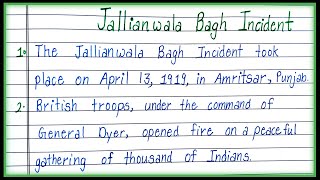 Jallianwala Bagh Incident
1. The Jallianwala Bagh Incident took
place on April 13, 1919, in Amritsar, Punjab
2. British troops, under the command of
General Dyer, opened fire on a peaceful
gathering of thousand of Indians.